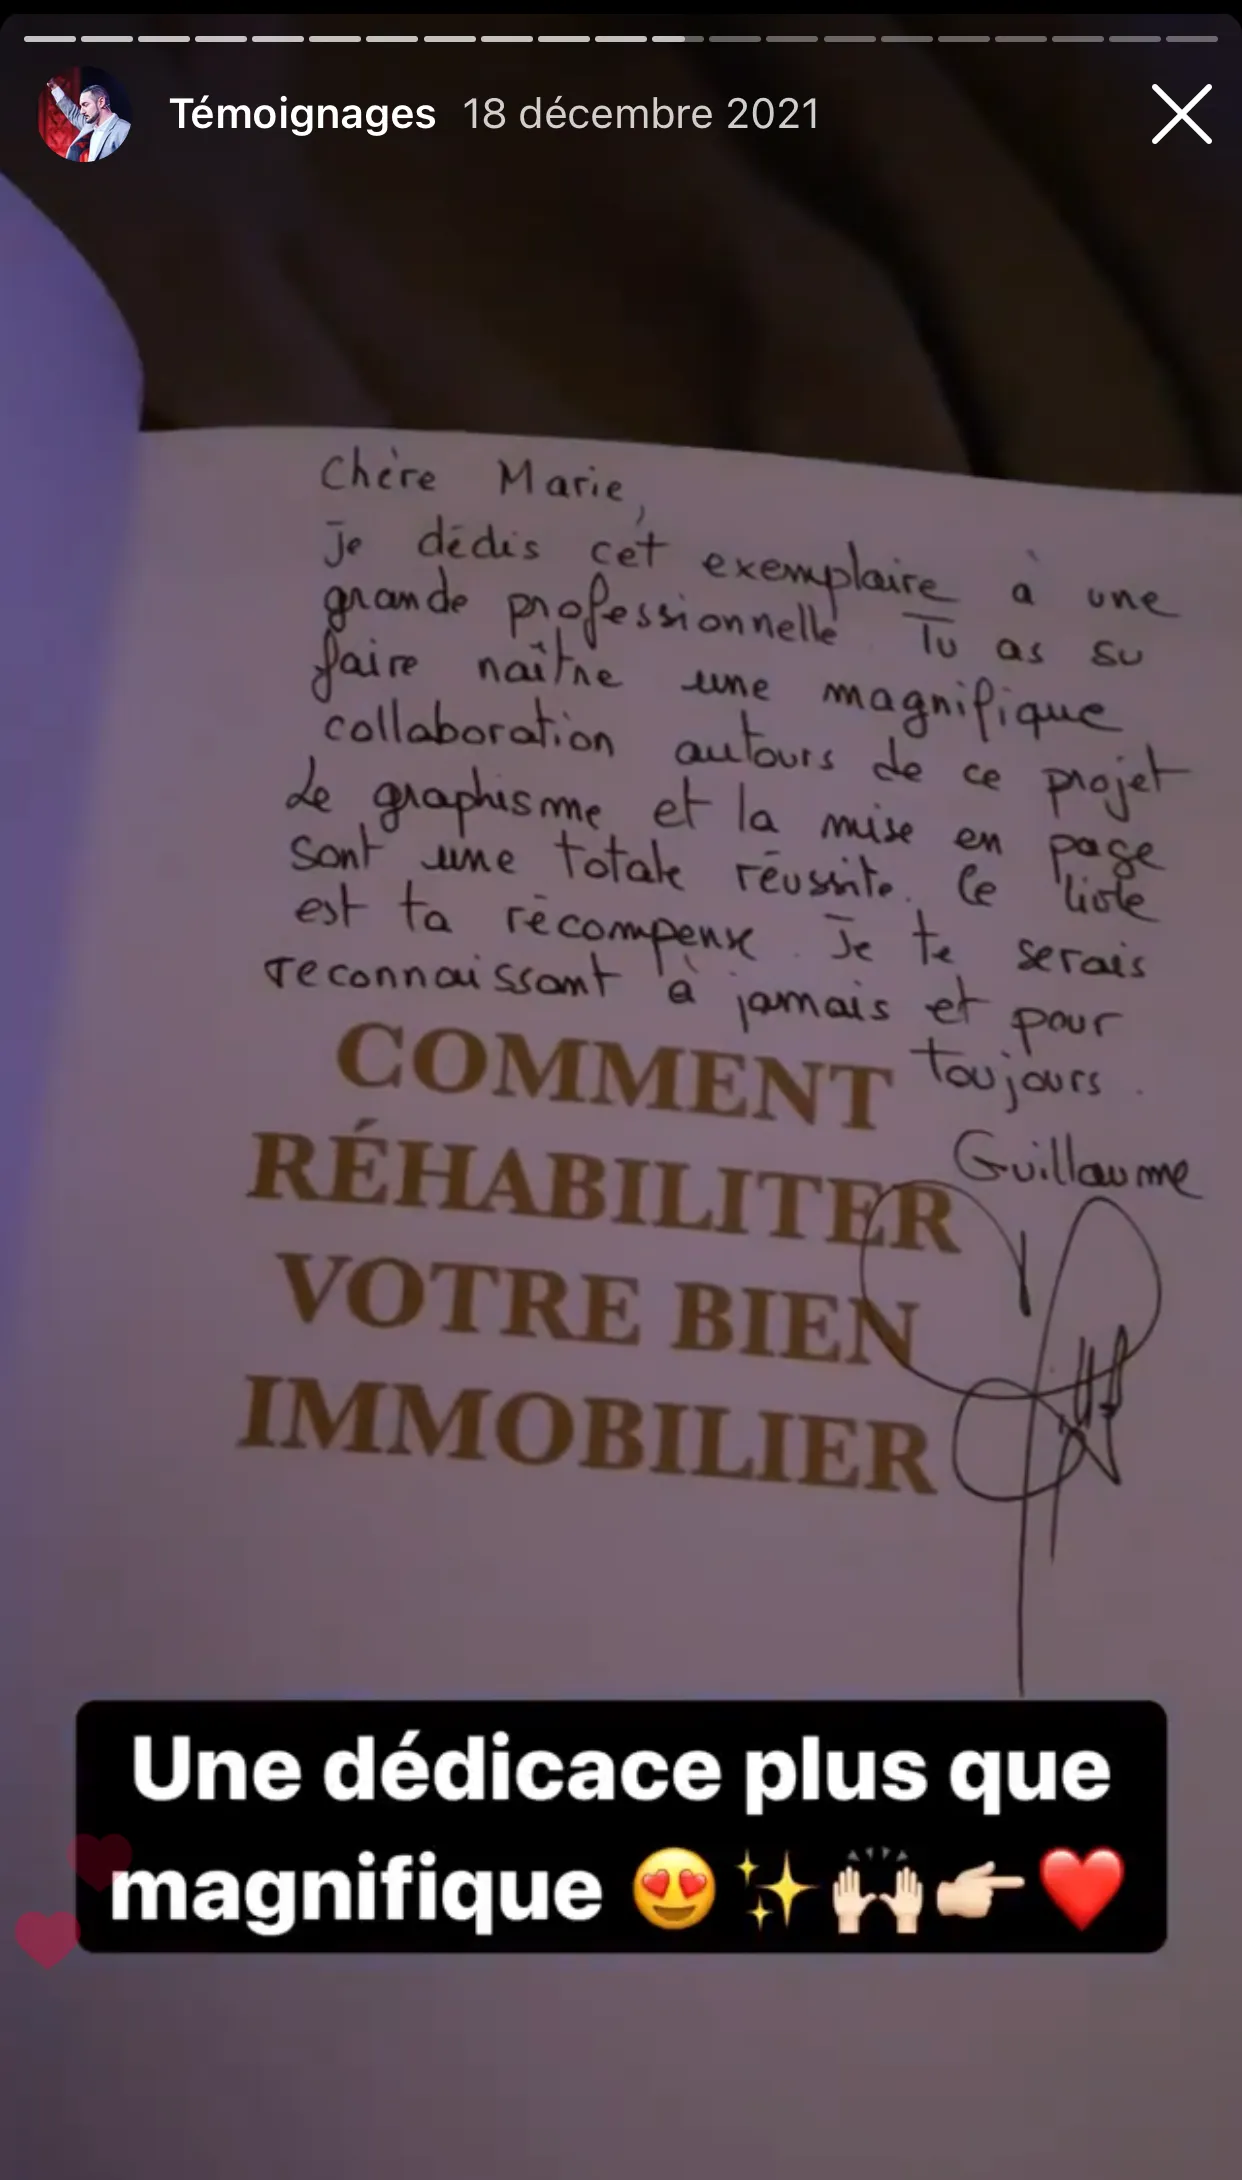 Témoignages 18 décembre 2021
Chère Marie,
je dédis cet exemplaire à une
grande professionnelle Tu as su
faire naître une magnifique
collaboration autours de ce projet
Le graphisme et la mise en page
sont une totale réussite. Ce livre
est ta récompense. Je te serais
reconnaissant à jamais et pour
toujours.
Guillaume
COMMENT
RÉHABILITER
VOTRE BIEN
IMMOBILIER
Une dédicace plus que
magnifique 😍✨🙌🏻👉🏻❤️